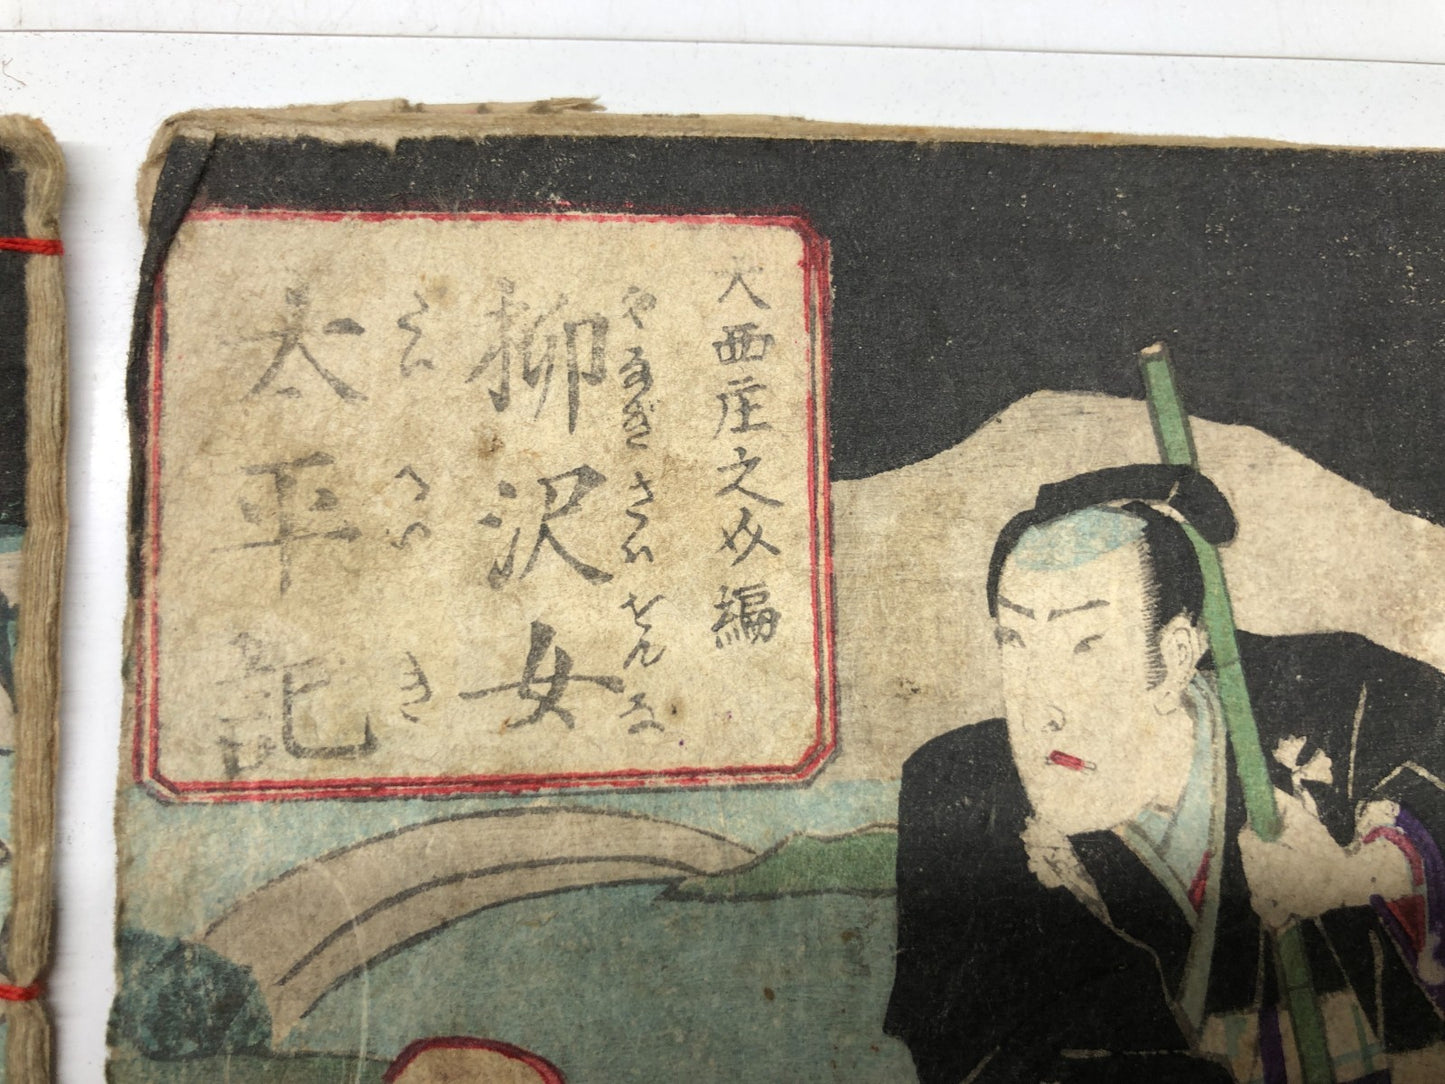 大西庄之助編
やなぎさハせんな
柳沢女
たいへいき
太平記